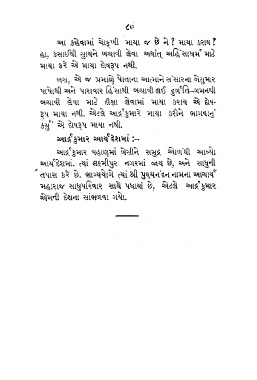 ૯૦
આ કહેવામાં ચોક્ખી માયા જ છે ને ? માયા કરાય ?
હા, કસાઈથી ગાયને બચાવી લેવા અર્થાત્ અહિંસાધર્મ માટે
માયા કરે એ માયા દોષરૂપ નથી.
બસ, એ જ પ્રમાણે પોતાના આત્માને સંસારના બેસુમાર
પાપોથી અને પારાવાર હિંસાથી બચાવી લઈ દુર્ગતિ-ગમનથી
બચાવી લેવા માટે દીક્ષા લેવામાં માયા કરાય એ દોષ-
રૂપ માયા નથી. એટલે આર્દ્રકુમારે માયા કરીને ભાગવાનું
કર્યું એ દોષરૂપ માયા નથી.
આર્દ્રકુમાર આર્યદેશમાં :-
આર્દ્રકુમાર વહાણમાં બેસીને સમુદ્ર ઓળંગી આવ્યો
આર્યદેશમાં. ત્યાં લક્ષ્મીપુર નગરમાં જાય છે, અને સાધુની
તપાસ કરે છે. ભાગ્યયોગે ત્યાં શ્રી પુણ્યનંદન નામના આચાર્ય
મહારાજ સાધુપરિવાર સાથે પધાર્યા છે, એટલે આર્દ્રકુમાર
એમની દેશના સાંભળવા ગયો.